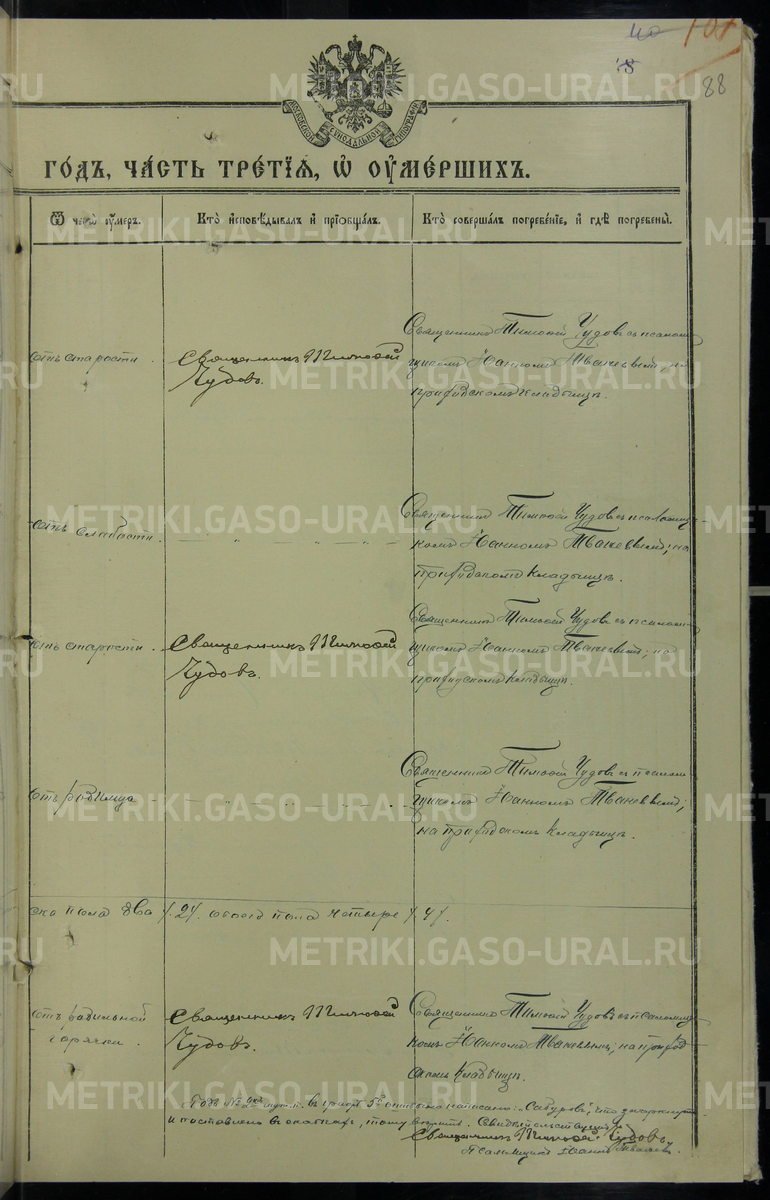 110
101
18
88
МОСКОВСКОЙ СѴНОДАЛЬНОЙ ТИПОГРАФІИ
ГО́ДЪ, ЧА́СТЬ ТРЕ́ТІѦ, Ѡ҆ ОУ҆МЕ́РШИХЪ.
Ѿ чегѡ̀ оу҆́меръ.
Кто̀ и҆сповѣ́дывалъ и҆ прїобща́лъ.
Кто̀ соверша́лъ погребе́нїе, и҆ гдѣ̀ погребены̀.
отъ старости.
Священникъ Тимофей
Чудовъ.
Священникъ Тимофей Чудовъ съ псаломщи
Іоанномъ
приходскомъ кладбищѣ.
отъ слабости.
Священникъ Тимофей Чудовъ съ псаломщи
комъ Іоанномъ на
приходскомъ кладбищѣ.
отъ старости.
Священникъ Тимофей
Чудовъ.
Священникъ Тимофей Чудовъ съ псалом
щикомъ Іоанномъ на
приходскомъ кладбищѣ.
отъ родимца
Священникъ Тимофей Чудовъ съ псалом
щикомъ Іоанномъ
на приходскомъ кладбищѣ.
ска пола два /.2/. обоего пола четыре /.4/.
отъ родильной
горячки.
Священникъ Тимофей
Чудовъ.
Священникъ Тимофей Чудовъ съ псаломщи
комъ Іоанномъ на приход
скомъ кладбищѣ.
написано: „Сабуровъ",
и поставлено въ скобкахъ, тому вѣрить.
Священникъ Тимофей Чудовъ.
Псаломщикъ Іоаннъ
METRIKI.GASO-URAL.RU